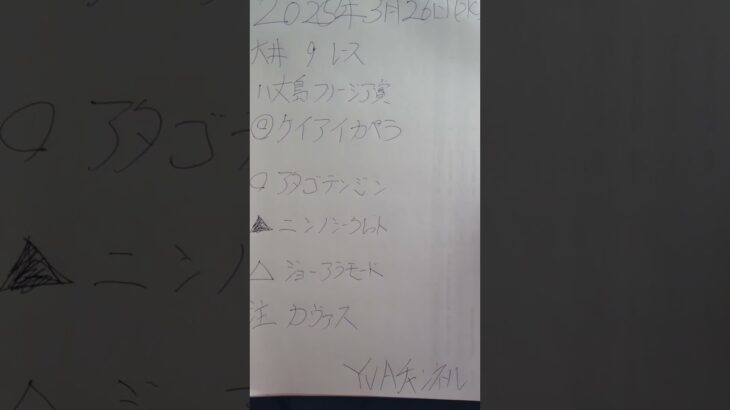 2025年3月26日(水)
大井 9 レース
八丈島フリージア賞
◎ケイアイカペラ
○ アタゴテンジン
▲ ニシノシークレット
△ ジョーアラモード
注 カヴァス
YUAチャンネル